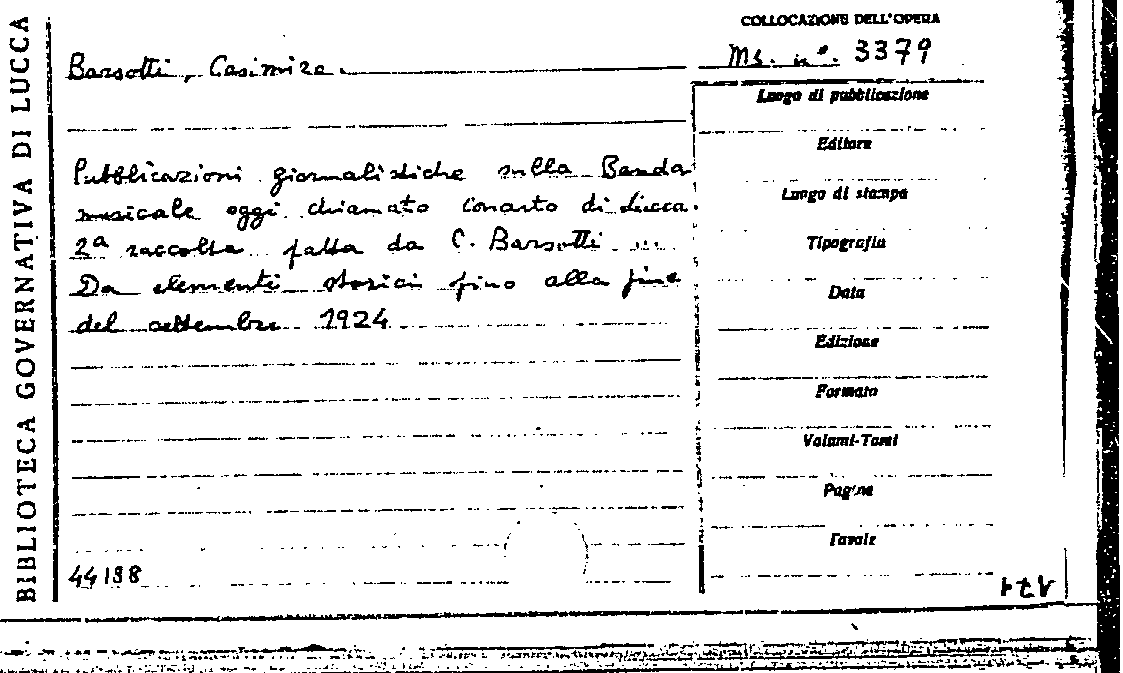 BIBLIOTECA GOVERNATIVA DI LUCCA
COLLOCAZIONE DELL'OPERA
Ms. n°. 3379
Barsotti, Casimiro.
Pubblicazioni giornalistiche sulla Banda
musicale oggi chiamato Concerto di Lucca.
2ª raccolta fatta da C. Barsotti ...
Da elementi storici fino alla fine
del settembre 1924
44198
Luogo di pubblicazione
Editore
Luogo di stampa
Tipografia
Data
Edizione
Formato
Volumi-Tomi
Pagine
Tavole